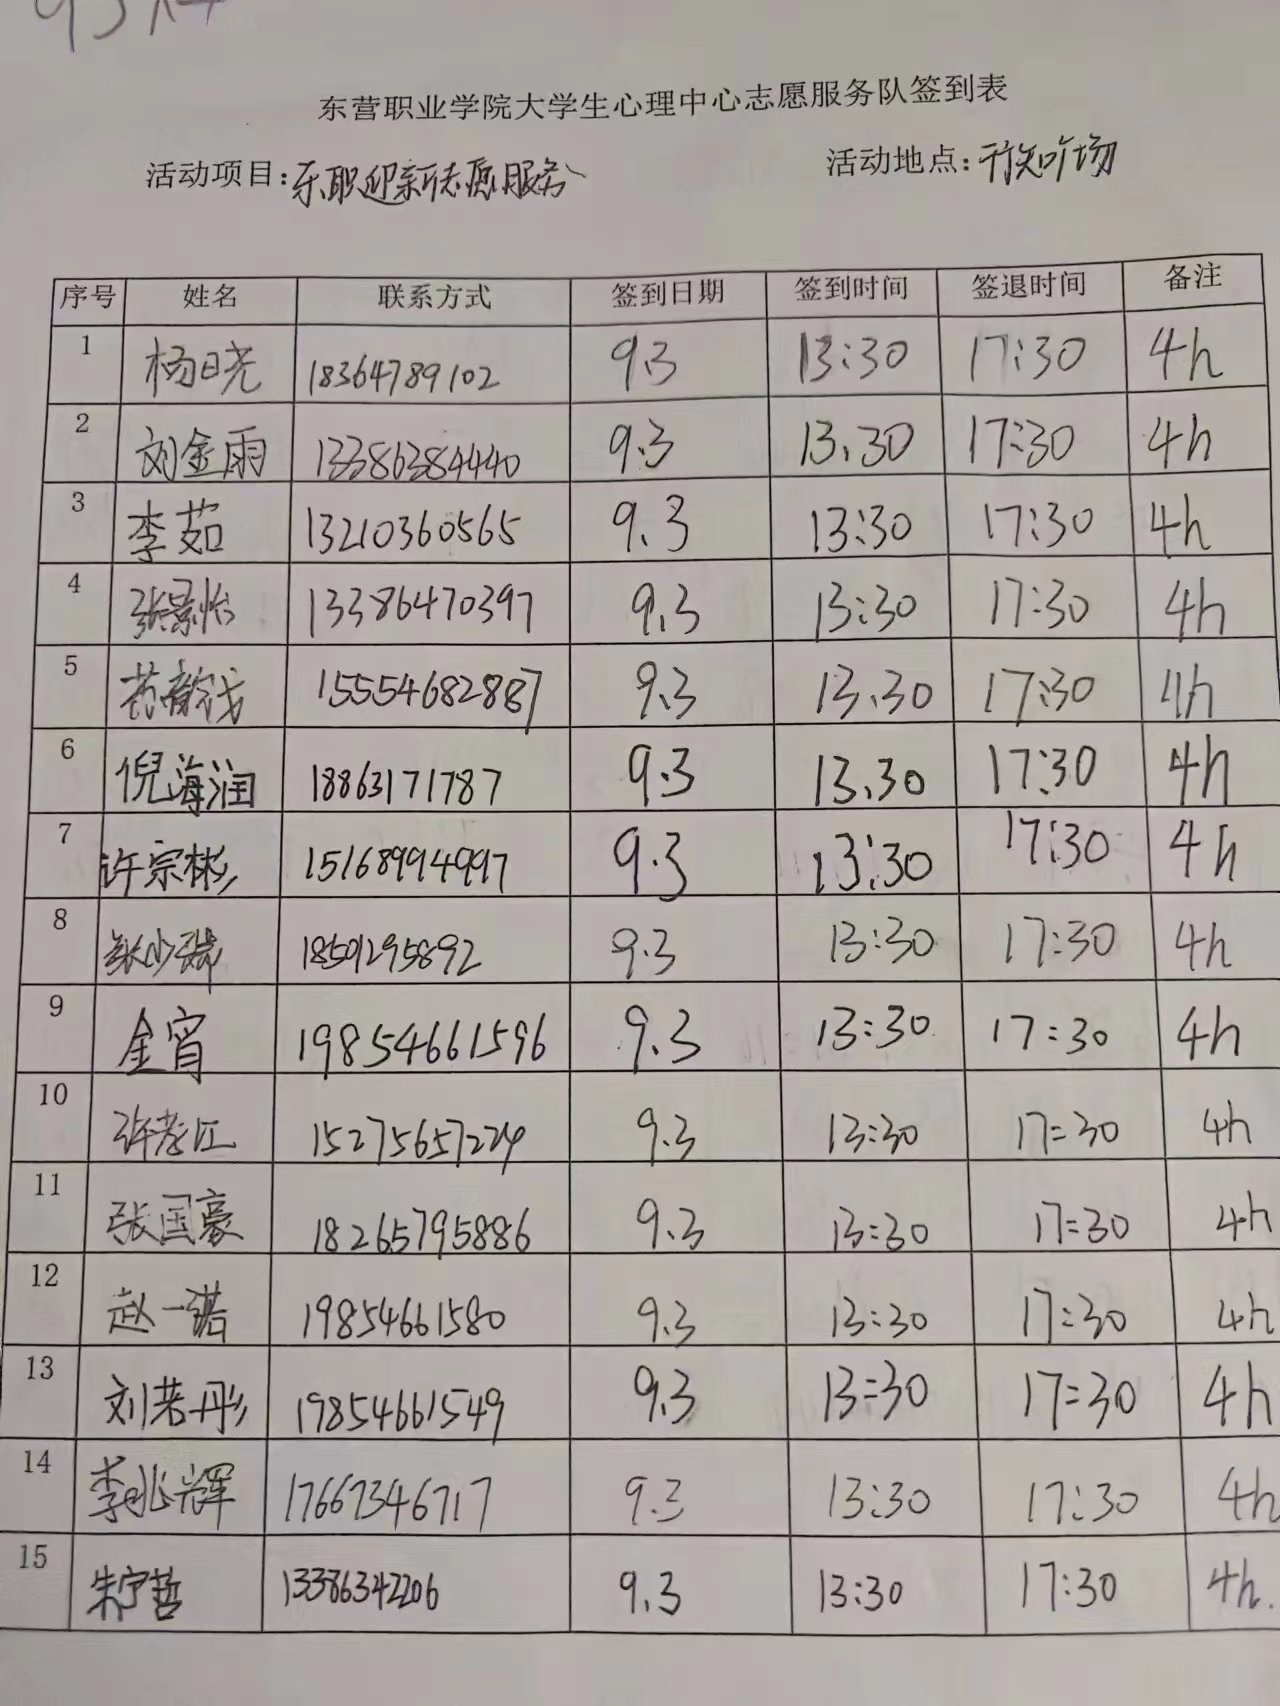 东营职业学院大学生心理中心志愿服务队签到表
活动项目:东职迎新志愿服务 活动地点:行知广场
序号 姓名 联系方式 签到日期 签到时间 签退时间 备注
1 杨日尧 18364789102 9.3 13:30 17:30 4h
2 刘金雨 13386384440 9.3 13.30 17:30 4h
3 李茹 13210360565 9.3 13:30 17:30 4h
4 张景怡 13386470397 9.3 13:30 17:30 4h
5 15554682887 9.3 13.30 17:30 4h
6 倪海润 18863171787 9.3 13.30 17:30 4h
7 许宗彬 15168994997 9.3 13:30 17:30 4h
8 张少瑞 18501295892 9.3 13:30 17:30 4h
9 金宵 19854661596 9.3 13:30 17:30 4h
10 许孝江 15275657224 9.3 13:30 17:30 4h
11 张国豪 18265795886 9.3 13:30 17:30 4h
12 赵一诺 19854661580 9.3 13:30 17:30 4h
13 刘若彤 19854661549 9.3 13:30 17:30 4h
14 李兆辉 17667346717 9.3 13:30 17:30 4h
15 朱宁哲 13386342206 9.3 13:30 17:30 4h.